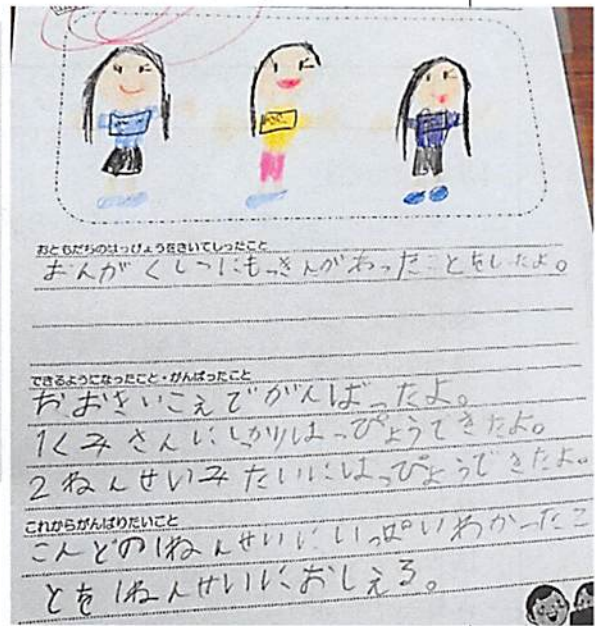 おともだちのはっぴょうをきいてしったこと
おんがくしつにもっきんがあったことをしたよ。
できるようになったこと・がんばったこと
おおきいこえでがんばったよ。
1くみさんにしっかりはっぴょうできたよ。
2ねんせいみたいにはっぴょうできたよ。
これからがんばりたいこと
こんどの1ねんせいにいっぱいわかったこ
とを1ねんせいにおしえる。